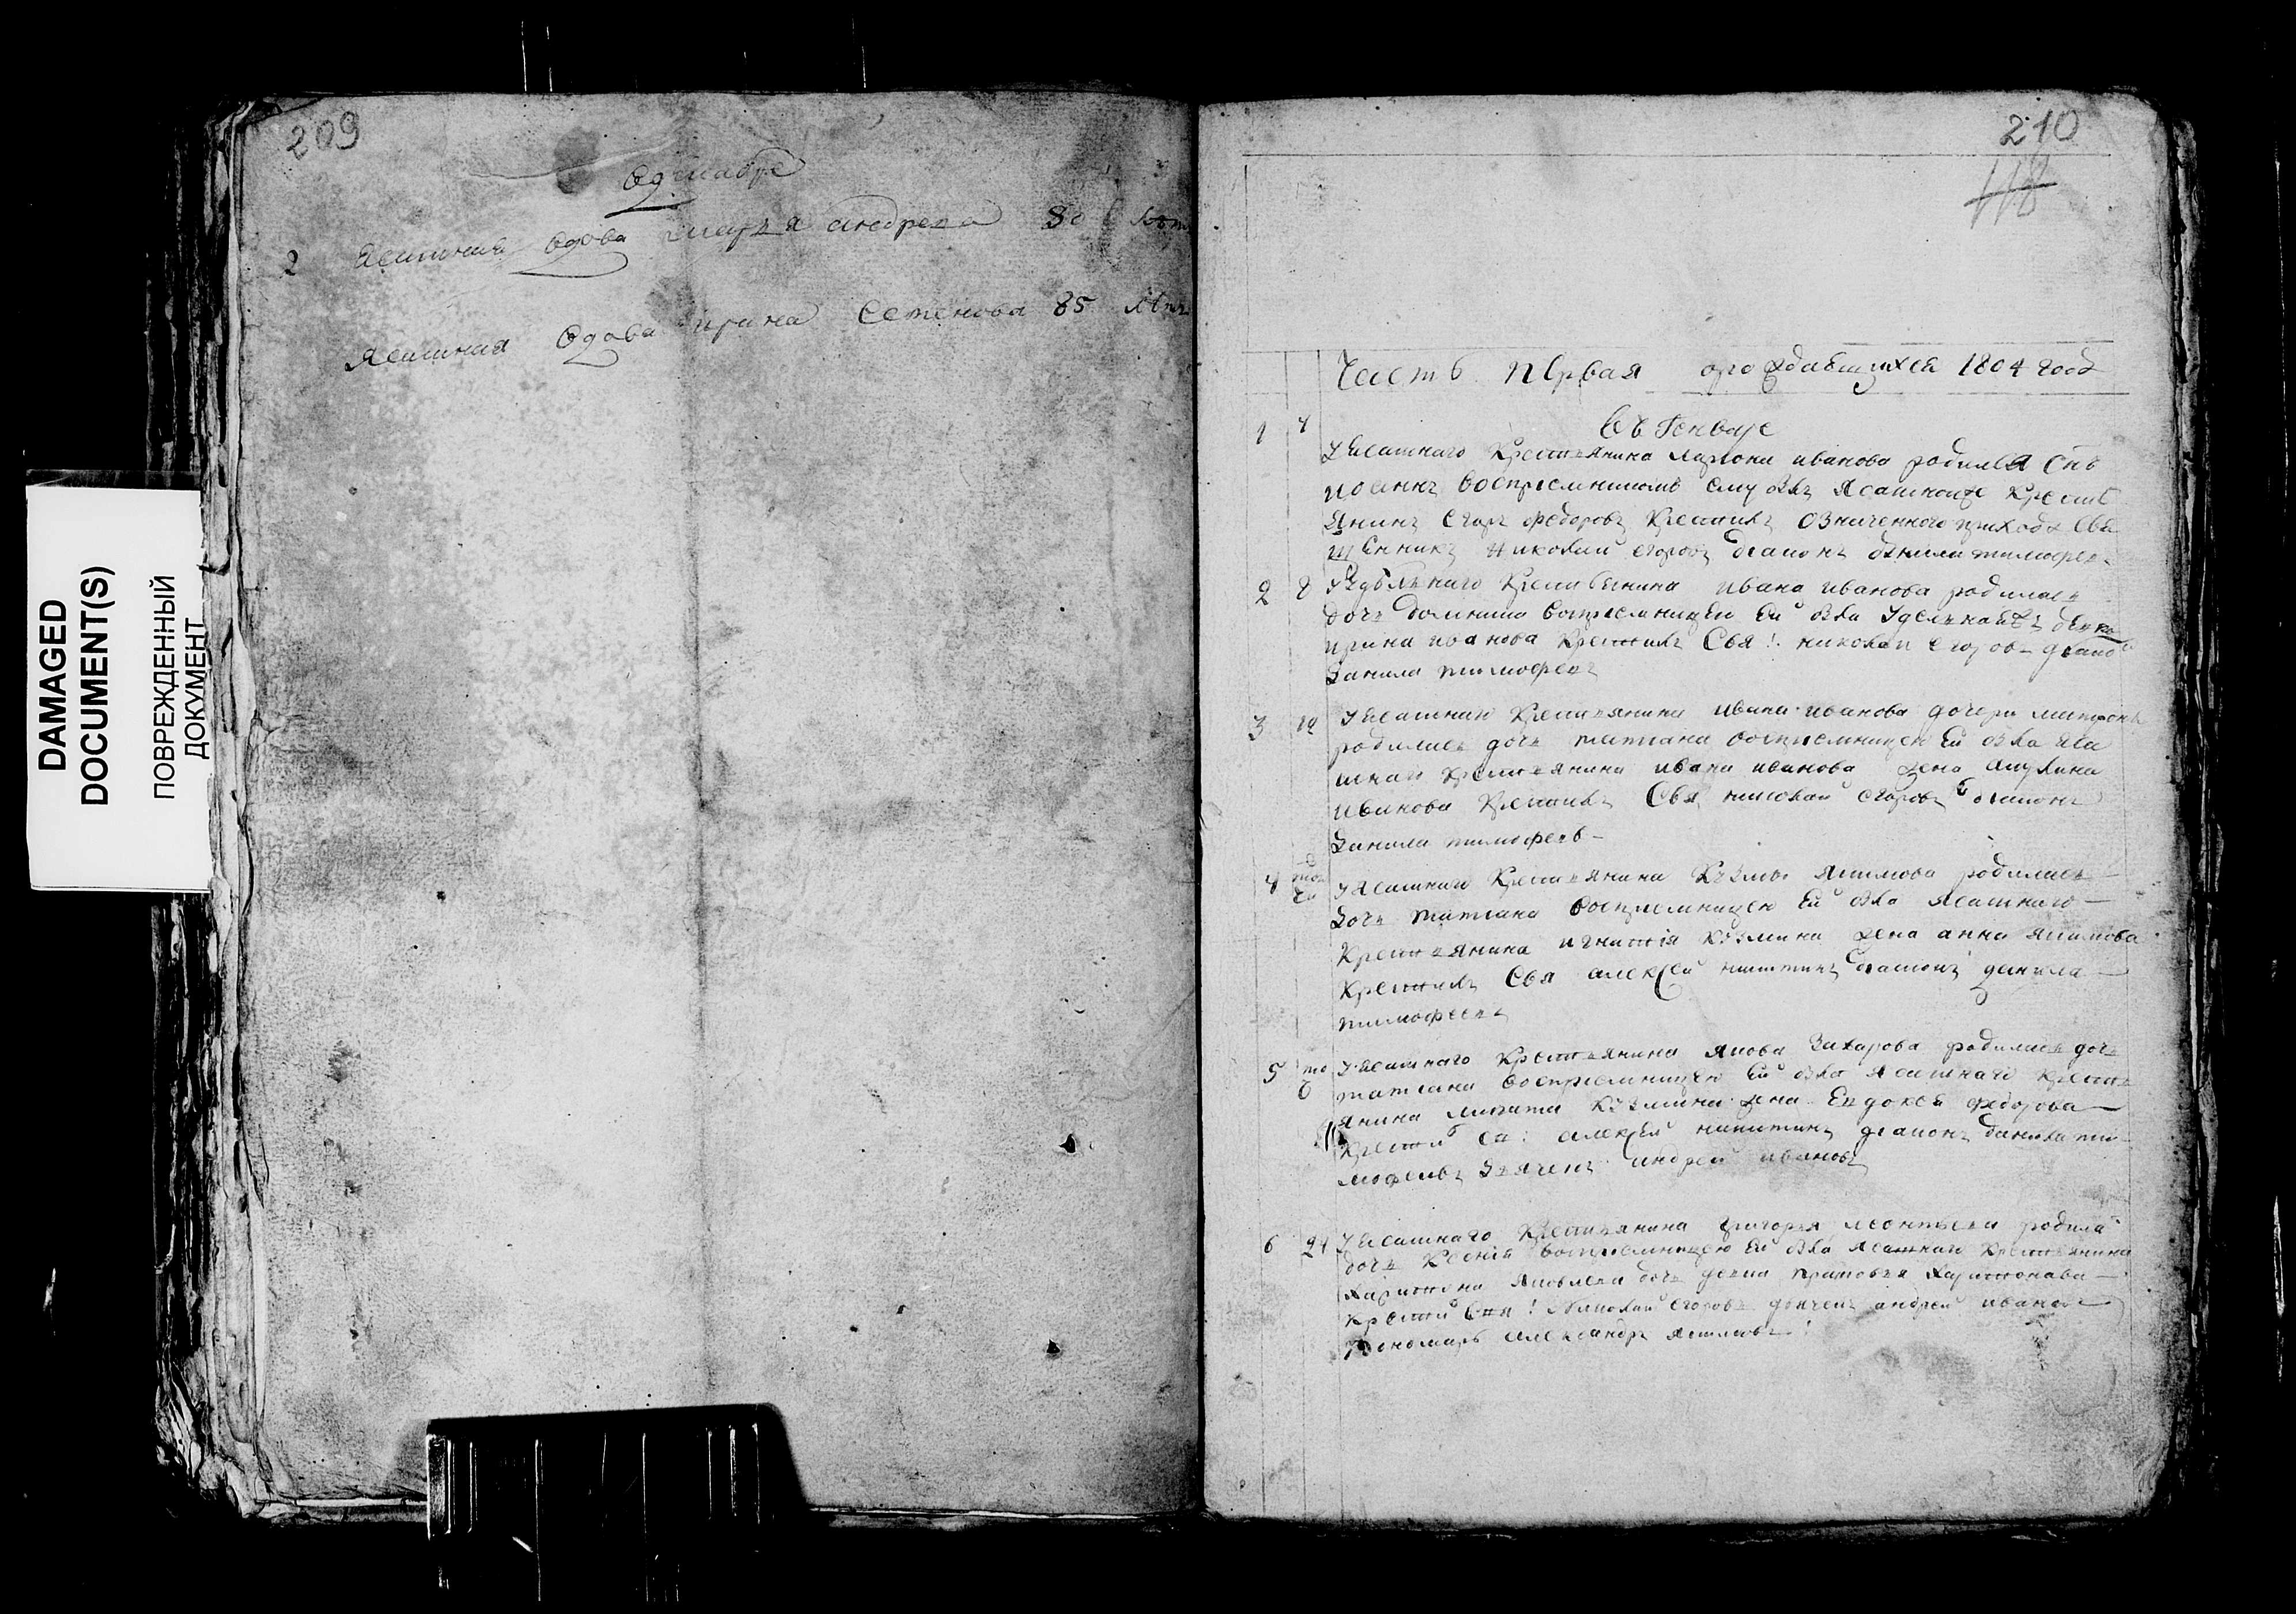 DAMAGED
DOCUMENT(S)
ПОВРЕЖДЕННЫЙ
ДОКУМЕНТ
209
Вдекабре
2 Ясашная вдова марья андреева 80 летъ
Ясашная вдова ирина Семенова 85 летъ
210
118
Честь первая ородившихся 1804 года
Въ Генваре
1 4 У Ясашнаго Крестьянина лариона иванова родился Снъ
иоаннъ Воспріемникомъ ему былъ Ясашной Кресть
янинъ егоръ федоровъ Крестилъ означенного прихода Свя
щенникъ николаи егоровъ діаконъ данила тимофее
2 8 У Удѣльнаго Крестьянина ивана иванова родилась
дочь домника Воспріемницеи Ей была Удельная девка
ирина иванова Крестилъ Свя: николаи егоров діако
данила тимофеевъ
3 У Ясашнаго Крестьянина ивана иванова дочери матроны
родилась дочь татиана воспріемницею Ей была яса
шнаго крестьянина ивана иванова жена акулина
иванова Крестилъ Свя николаи егоровъ діаконъ
данила тимофеев
4 У Ясашнаго Крестьянина Кузмы якимова родилась
дочь татиана воспріемницею Ей была Ясашнаго
Крестьянина игнатія Кузмина жена анна якимова
Крестилъ Свя алексей никитинъ діаконъ данила
тимофеевъ
5 У Ясашнаго Крестьянина якова Захарова родилась дочь
татиана воспріемницею Ей была Ясашнаго Кресть
янина Кузмина жена Евдокея федорова
Крестил Св: алексеи никитинъ діаконъ данила ти
мофеевъ дьячекъ андреи ивановъ
6 У Ясашнаго Крестьянина Григорья леонтьева родила
дочь Ксенія воспріемницею Ей была Ясашнаго Крестьянина
харитона яковлева дочь девка прасковья харитонова
крести Свя: николаи егоровъ дьячекъ андреи иванов
Пономарь александръ якимовъ